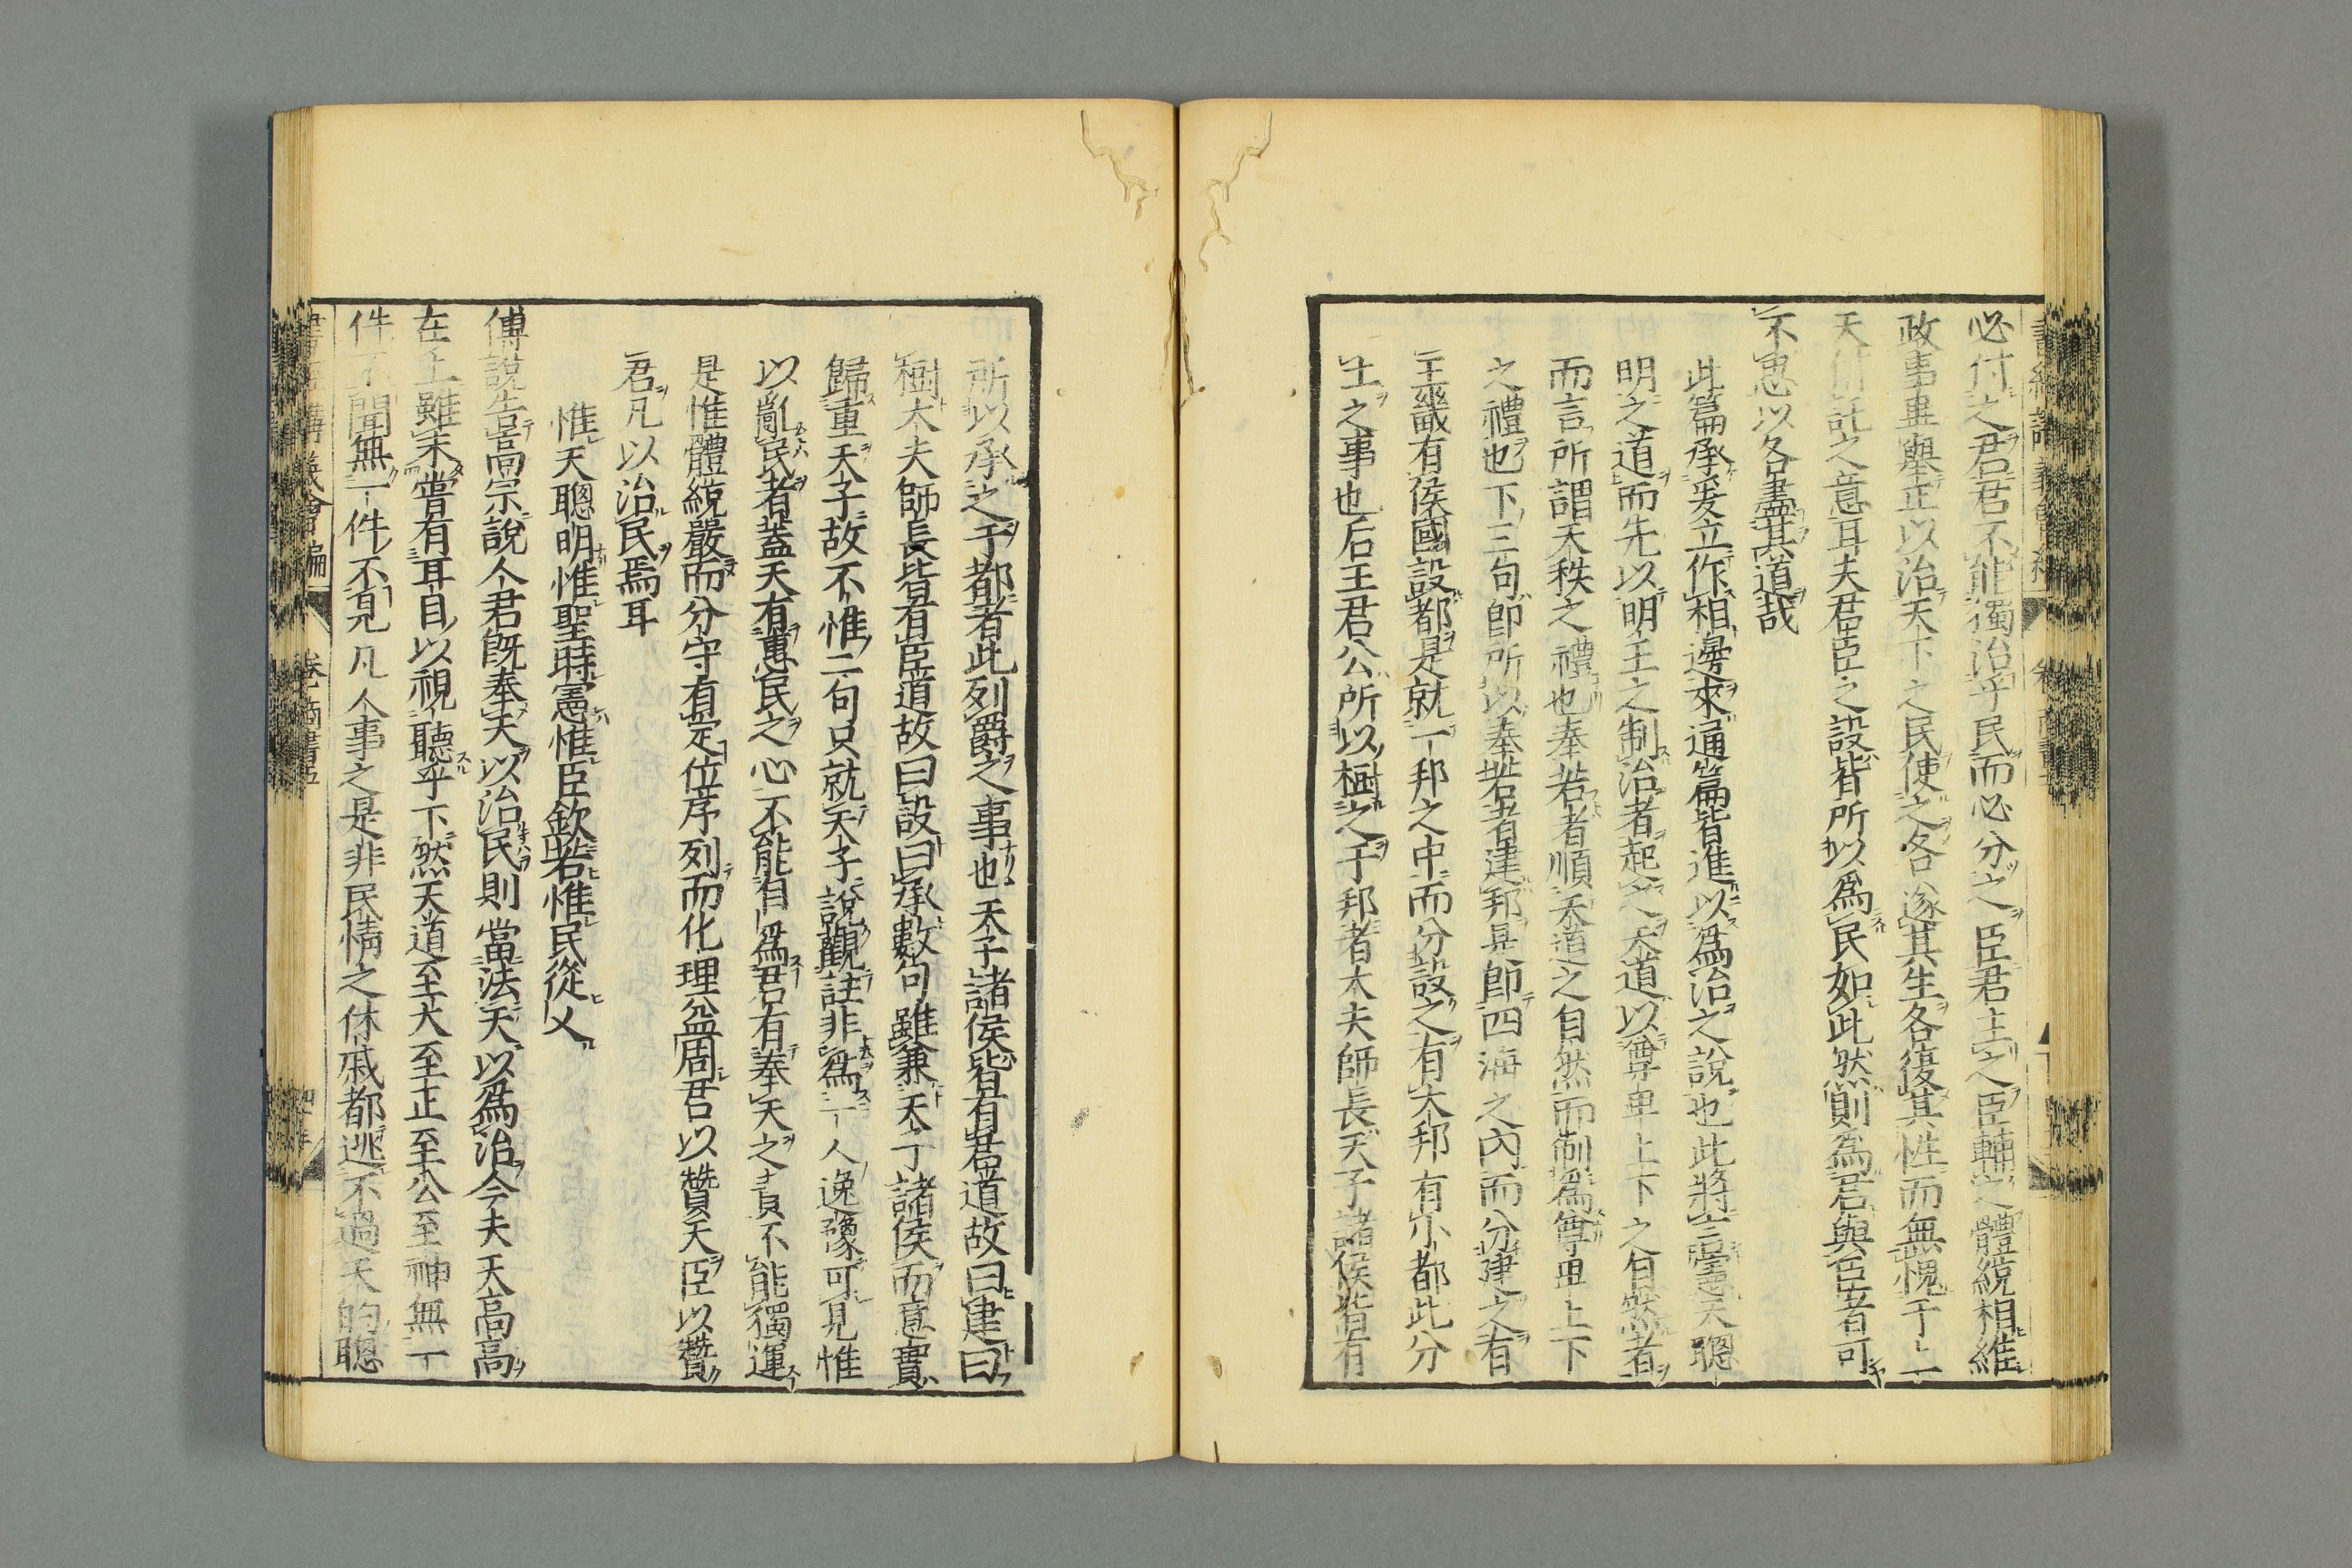 必付之君君不能獨治乎民而必分之臣君主之臣輔之體統相維
政事畢舉正以治天下之民使之各遂其生各復其性而無愧于上
天付託之意耳夫君臣之設皆所以爲民如此然則爲君與臣者可
不思以各盡其道哉
此篇承爰立作相邊來通篇皆進以爲治之說也此將言憲天聰
明之道而先以明王之制治者起之天道以尊卑上下之自然者
而言所謂天秩之禮也奉若者順天道之自然而制爲尊卑上下
之禮也下三句卽所以奉若者建邦是卽四海之內而分建之有
王畿有侯國設都是就一邦之中而分設之有大邦有小都此分
土之事也后王君公所以樹之于邦者大夫師長天子諸侯皆有
所以承之于都者此列爵之事也天子諸侯皆有君道故曰建曰
樹大夫師長皆有臣道故曰設曰承數句雖兼天子諸侯而意實
歸重天子故不惟二句只就天子說觀註非爲一人逸豫可見惟
以亂民者蓋天有惠民之心不能自爲君有奉天之責不能獨運
是惟體統嚴而分守有定位序列而化理益周君以贊天臣以贊
君凡以治民焉耳
惟天聰明惟聖時憲惟臣欽若惟民從乂
傅說告高宗說人君旣奉天以治民則當法天以爲治今夫天高高
在上雖未嘗有耳目以視聽乎下然天道至大至正至公至神無一
件不聞無一件不見凡人事之是非民情之休戚都逃不過天的聰